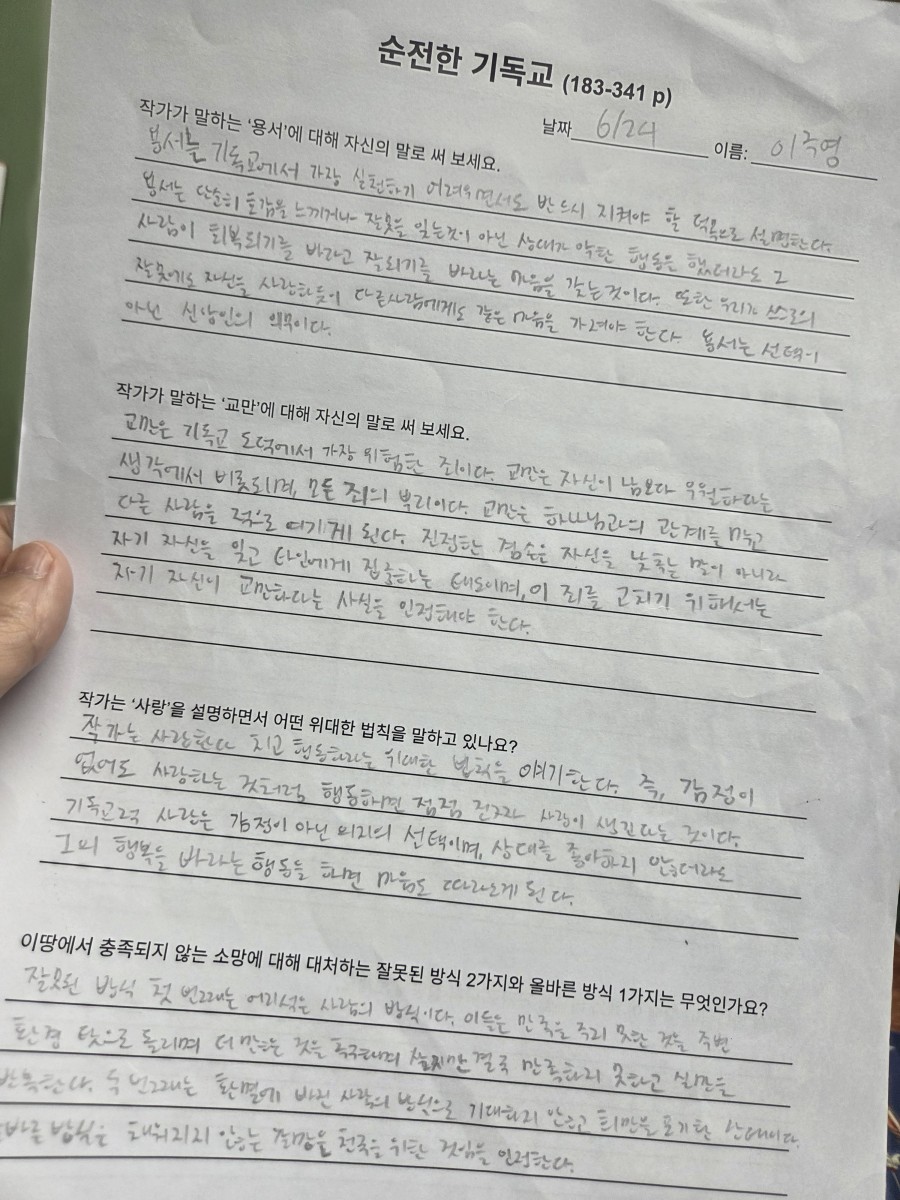 순전한 기독교 (183-341 p)
날짜 6/24 이름: 이국영
작가가 말하는 '용서'에 대해 자신의 말로 써 보세요.
용서는 기독교에서 가장 실천하기 어려우면서도 반드시 지켜야 할 덕목으로 설명한다.
용서는 단순히 호감을 느끼거나 잘못을 잊는것이 아닌 상대가 악한 행동을 했더라도 그
사람이 회복되기를 바라고 잘되기를 바라는 마음을 갖는것이다. 또한 우리가 스스로의
잘못에도 자신을 사랑하듯이 다른사람에게도 같은 마음을 가져야 한다. 용서는 선택이
아닌 신앙인의 의무이다.
작가가 말하는 '교만'에 대해 자신의 말로 써 보세요.
교만은 기독교 도덕에서 가장 위험한 죄이다. 교만은 자신이 남보다 우월하다는
생각에서 비롯되며, 모든 죄의 뿌리이다. 교만은 하나님과의 관계를 막고
다른 사람을 적으로 여기게 된다. 진정한 겸손은 자신을 낮추는 말이 아니라
자기 자신을 잊고 타인에게 집중하는 태도이며, 이 죄를 고치기 위해서는
자기 자신이 교만하다는 사실을 인정해야 한다.
작가는 '사랑'을 설명하면서 어떤 위대한 법칙을 말하고 있나요?
작가는 사랑한다 치고 행동하라는 위대한 법칙을 얘기한다. 즉, 감정이
없어도 사랑하는 것처럼 행동하면 점점 진짜 사랑이 생긴다는 것이다.
기독교적 사랑은 감정이 아닌 의지의 선택이며, 상대를 좋아하지 않더라도
그의 행복을 바라는 행동을 하면 마음도 따라오게 된다.
이땅에서 충족되지 않는 소망에 대해 대처하는 잘못된 방식 2가지와 올바른 방식 1가지는 무엇인가요?
잘못된 방식 첫 번째는 어리석은 사람의 방식이다. 이들은 만족을 주지 못한 것을 주변
환경 탓으로 돌리며 더 많은 것을 추구하며 살지만 결국 만족하지 못하고 실망을
반복한다. 두 번째는 환멸에 빠진 사람의 방식으로 기대하지 않고 희망을 포기한 상태이다.
바른 방식은 채워지지 않는 갈망을 천국을 위한 것임을 인정한다.